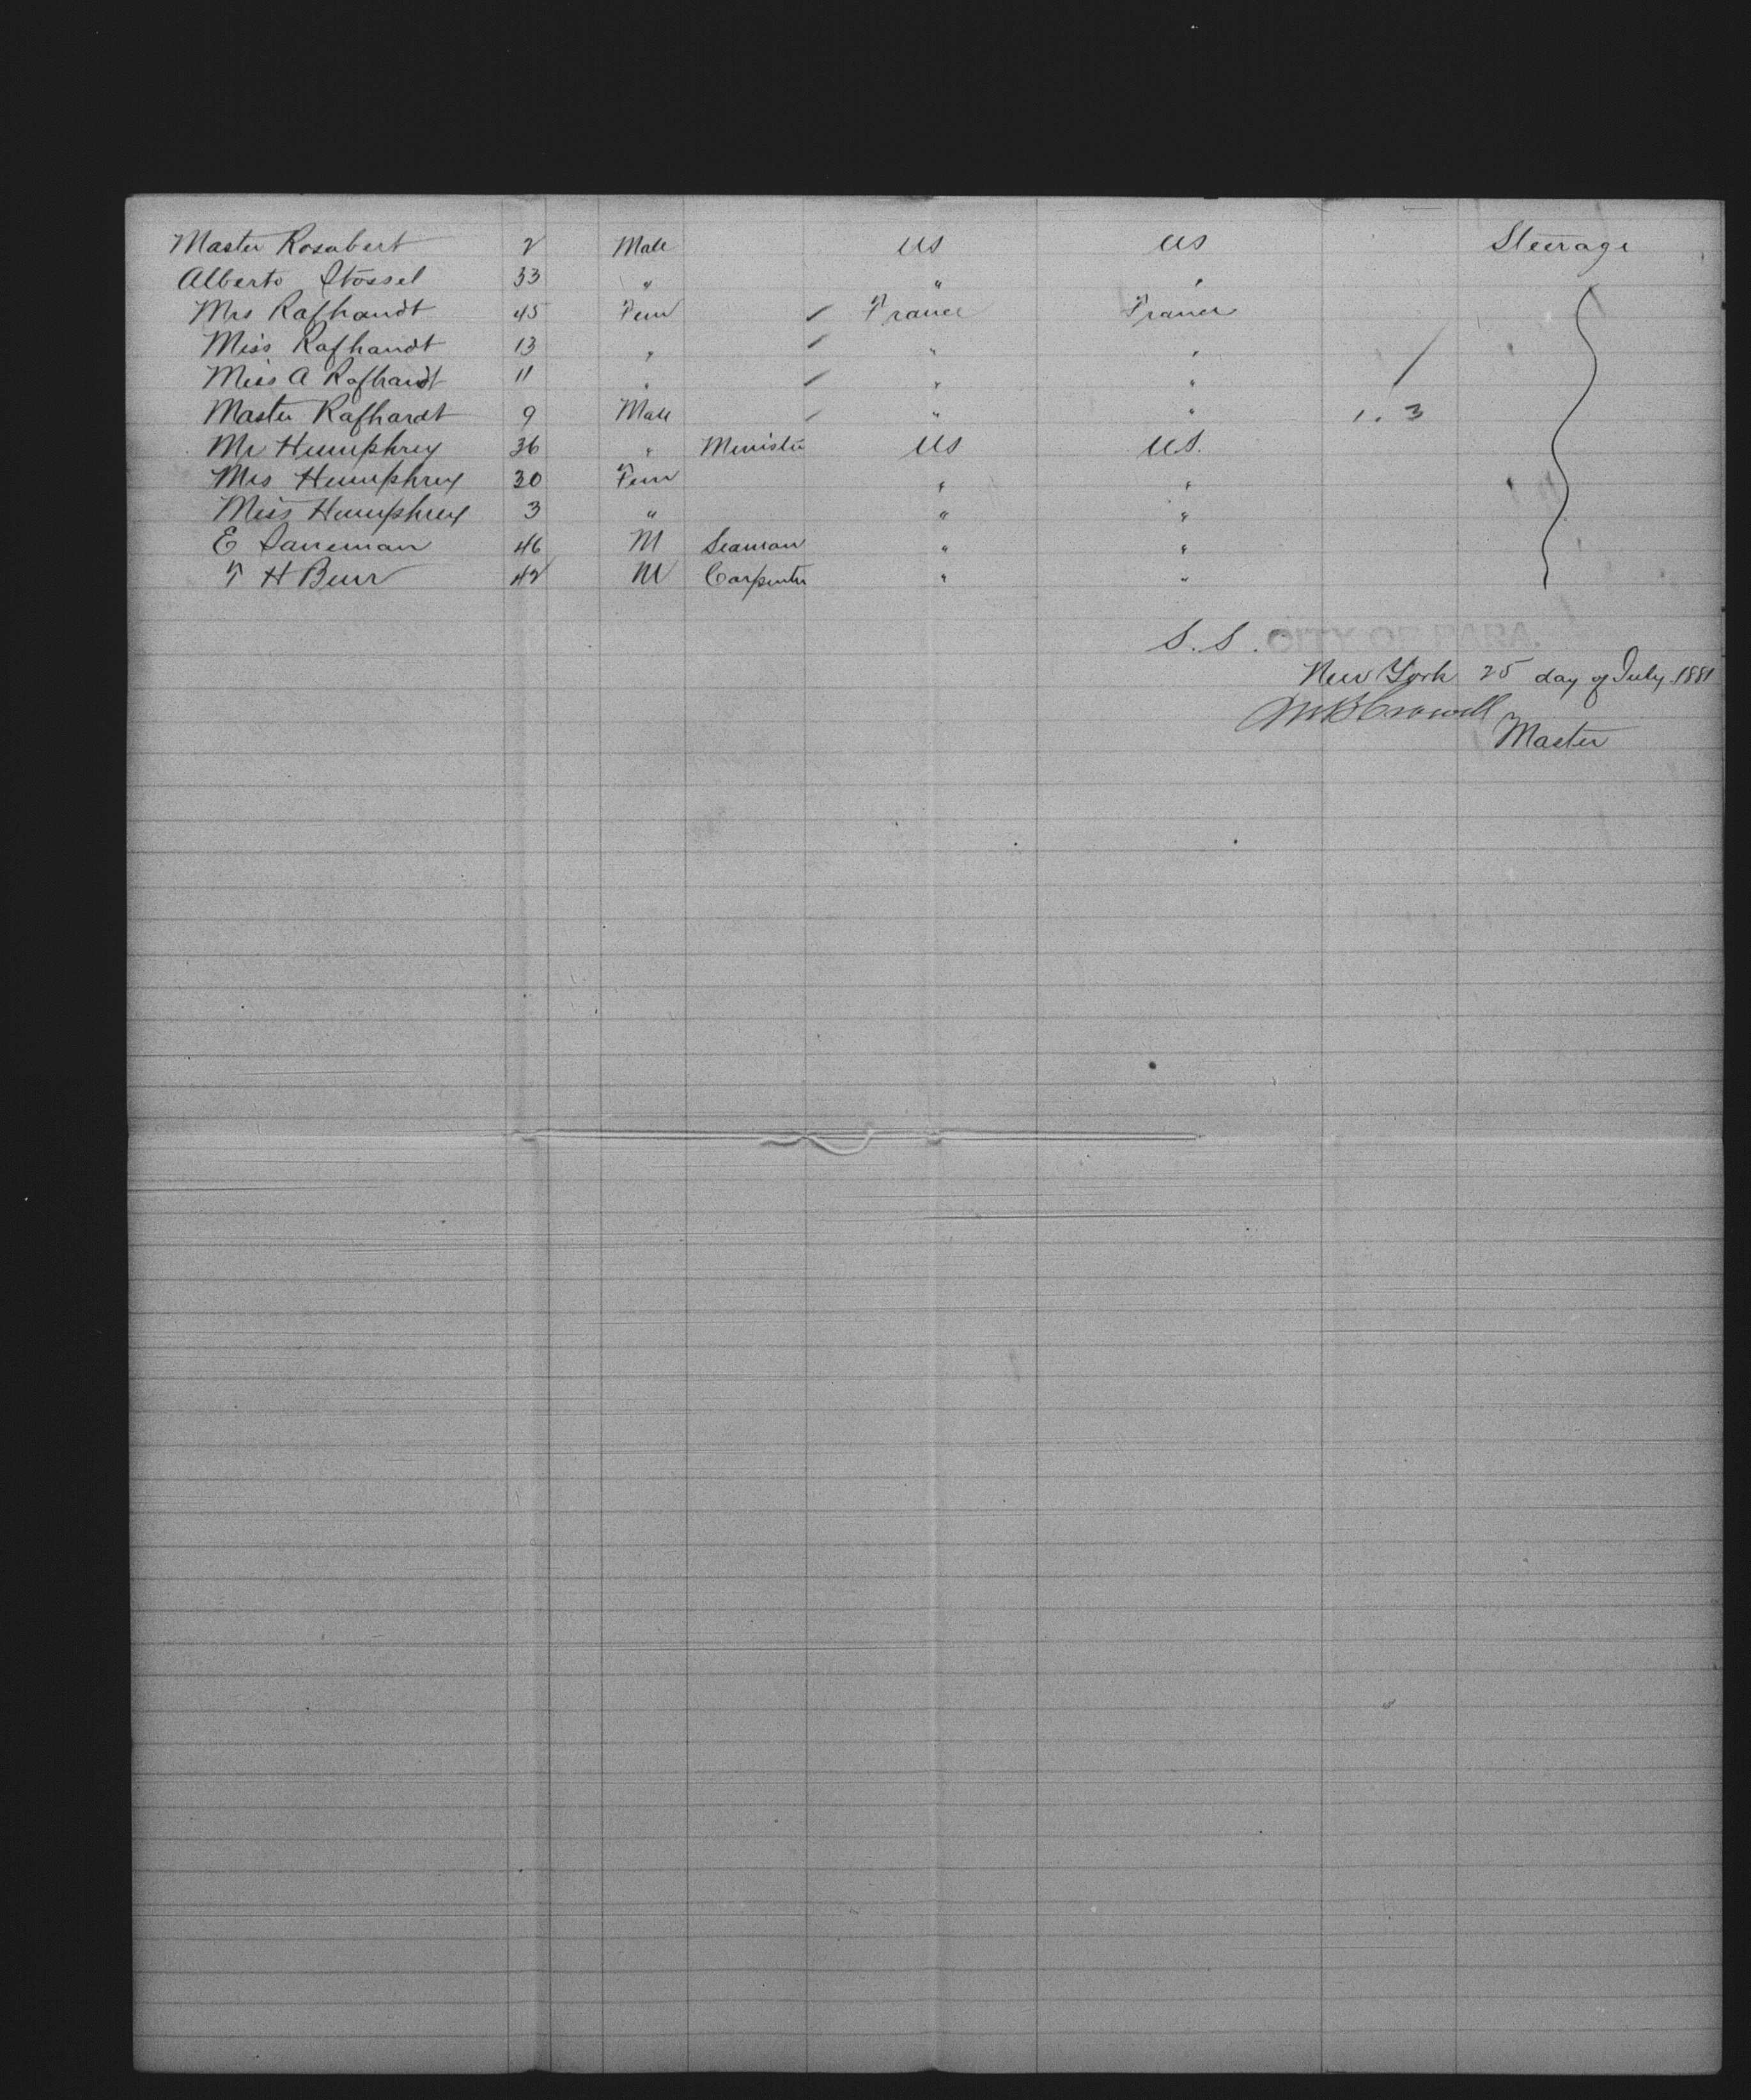 Master Rosabert 2 Male US US Steerage
Alberto Stossel 33 " " "
Mrs Rafhandt 45 Fem France France
Miss Rafhandt 13 " " "
Miss A Rafhardt 11 " " "
Master Rafhardt 9 Male " " 1. 3
Mr Humphrey 36 " Minister US U.S.
Mrs Humphrey 30 Fem " "
Miss Humphrey 3 " " "
E 46 M Seaman " "
F H Burr 42 M Carpenter " "
S. S. CITY OF PARA.
New York 25 day of July 1881
Crowell
Master